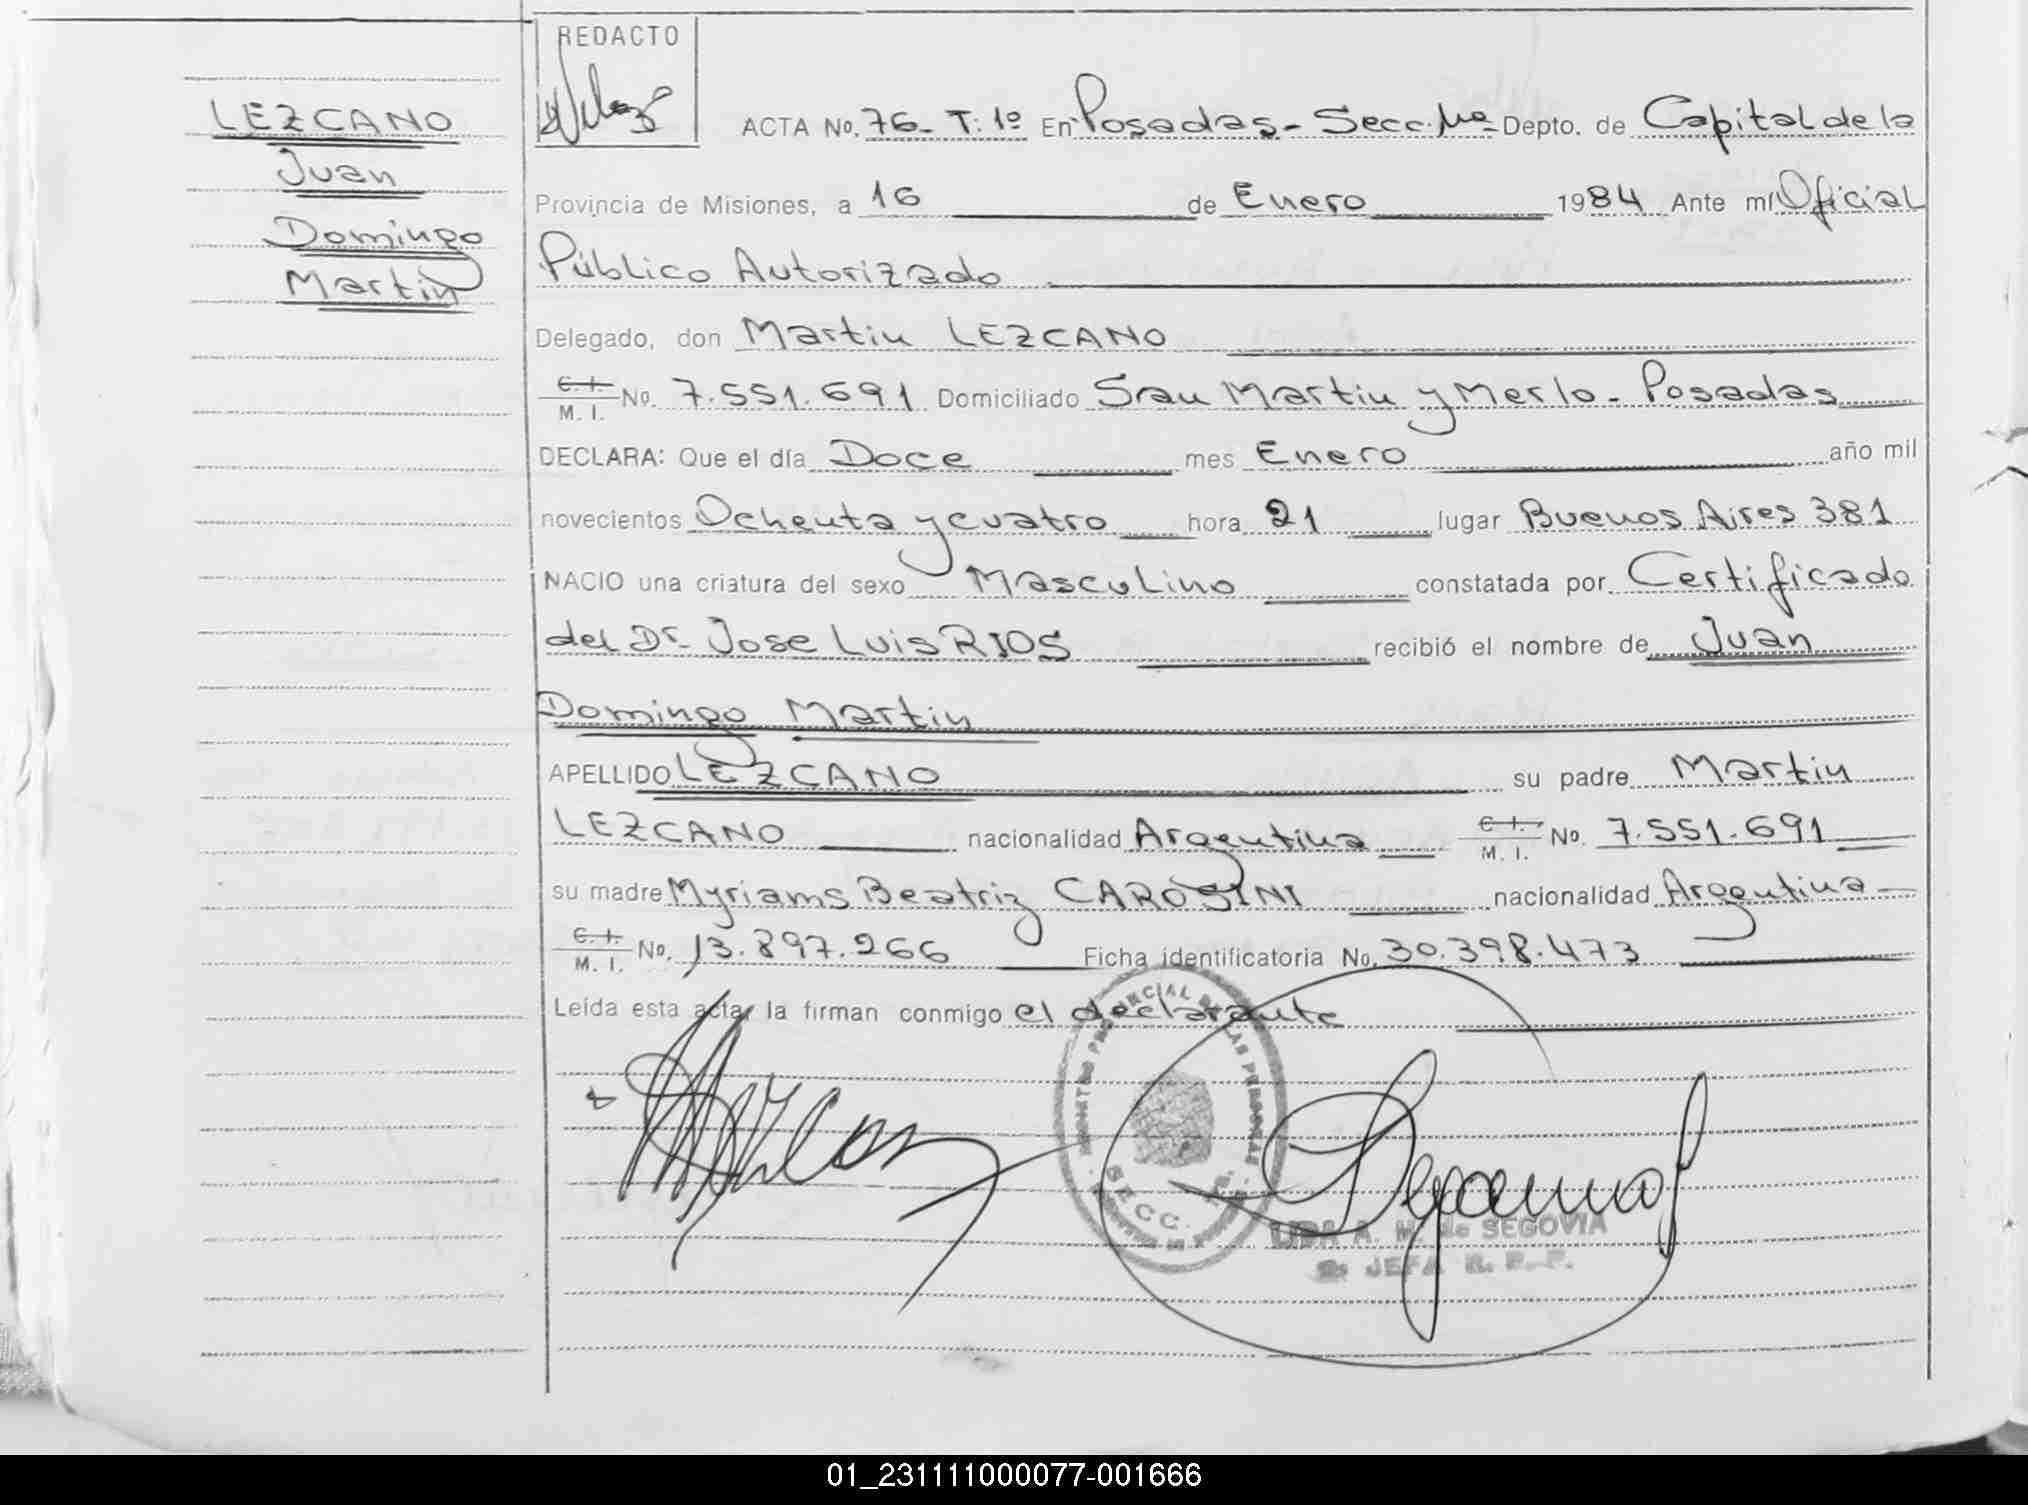 REDACTO
LEZCANO
Juan
Domingo
Martin
ACTA No. 76- T: 1º En Posadas- Secc. Depto. de Capital de la
Provincia de Misiones, a 16 de Enero 1984 Ante mí Oficial
Público Autorizado
Delegado, don Martin LEZCANO
C. I. M. I. No. 7.551.691 Domiciliado San Martin y Merlo - Posadas
DECLARA: Que el día Doce mes Enero año mil
novecientos Ochenta y cuatro hora 21 lugar Buenos Aires 381
NACIO una criatura del sexo Masculino constatada por Certificado
del Dr. Jose Luis RIOS recibió el nombre de Juan
Domingo Martin
APELLIDO LEZCANO su padre Martin
LEZCANO nacionalidad Argentina C. I. M. I. No. 7.551.691
su madre Myriams Beatriz CAROSINI nacionalidad Argentina
C. I. M. I. No. 13.897.266 Ficha identificatoria No. 30.398.473
Leída esta acta, la firman conmigo el declarante
REGISTRO PROVINCIAL DE LAS PERSONAS
SECC.
LIDA A. M. de SEGOVIA
JEFA R. P. P.
01_231111000077-001666